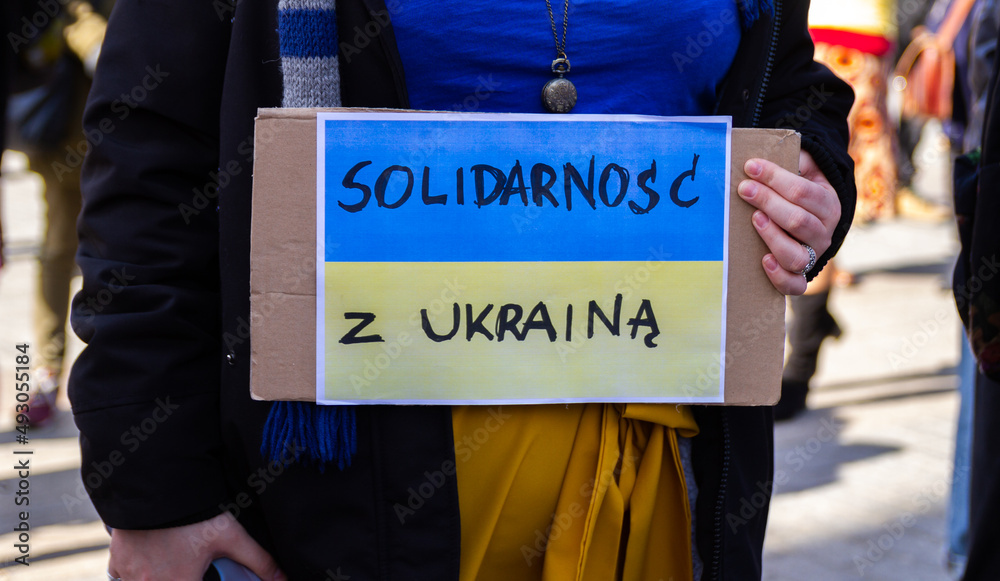 SOLIDARNOŚĆ
Z UKRAINĄ
Adobe Stock | #493055184